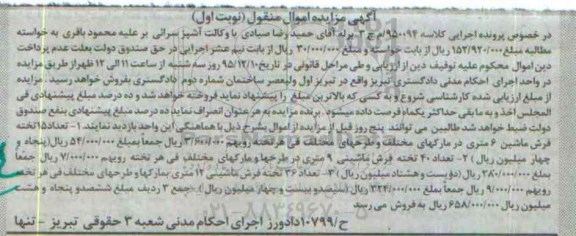 آگهی مزایده اموال منقول (نوبت اول)
در خصوص پرونده اجرایی کلاسه ۹۵۰۰۹۴/م ج ۳-برله آقای حمید رضا صیادی با وکالت آشیز سرائی بر علیه محمود باقری به خواسته
مطالبه مبلغ ۱۵۲/۹۲۰/۰۰۰ ریال از بابت خواسته و مبلغ ۳۰/۰۰۰/۰۰۰ ریال از بابت نیم عشر اجرایی در حق صندوق دولت بعلت عدم پرداخت
دین اموال محکوم علیه توقیف دین از ارزیابی و طی مراحل قانونی در تاریخ ۹۵/۱۲/۱۰ روز سه شنبه از ساعت ۱۱ الی ۱۲ ظهر از طریق مزایده
در واحد اجرای احکام مدنی دادگستری تبریز واقع در تبریز اول ولیعصر ساختمان شماره دوم دادگستری بفروش خواهد رسید. مزایده
از مبلغ ارزیابی شده کارشناسی شروع و به کسی که بالاترین مبلغ را پیشنهاد نماید فروخته خواهد شد و ده درصد مبلغ پیشنهادی فی
المجلس اخذ و به مابقی حداکثر یکماه فرصت داده میشود. برنده مزایده به هر عنوان انصراف نماید ده درصد مبلغ پیشنهادی بنفع صندوق
دولت ضبط خواهد شد طالبین می توانند پنج روز قبل از مزایده از اموال بشرح ذیل با هماهنگی این واحد بازدید نمایند. ۱- تعداد ۱۵ تخته
فرش ماشین ۶ متری در مارکهای مختلف و طرحهای مختلف فی هر تخته رویهم ۳/۶۰۰/۰۰۰ ریال جمعا بمبلغ ۵۴/۰۰۰/۰۰۰ ریال (پنجاه و
چهار میلیون ریال) ۲- تعداد ۴۰ تخته فرش ماشینی ۹ متری در طرحها و مارکهای مختلف فی هر تخته رویهم ۷/۰۰۰/۰۰۰ ریال جمعا
مبلغ ۲۸۰/۰۰۰/۰۰۰ ریال (دویست و هشتاد میلیون ریال) ۳- تعداد ۳۶ تخته فرش ماشینی ۱۲ متری بمارکها و طرحهای مختلف فی هر تخته
رویهم ۹/۰۰۰/۰۰۰ ریال جمعا مبلغ ۳۲۴/۰۰۰/۰۰۰ ریال (سیصد و بیست و چهار میلیون ریال). جمع ۳ ردیف مبلغ ششصد و پنجاه و هشت
میلیون ریال ۶۵۸/۰۰۰/۰۰۰ ریال به فروش می رسد
ح/۱۰۷۹۹ دادورز اجرای احکام مدنی شعبه ۳ حقوقی تبریز - تنها